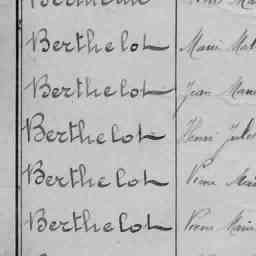 Berthelot Marie
Berthelot Jean Marie
Berthelot Henri Jules
Berthelot Pierre Marie
Berthelot Pierre Marie